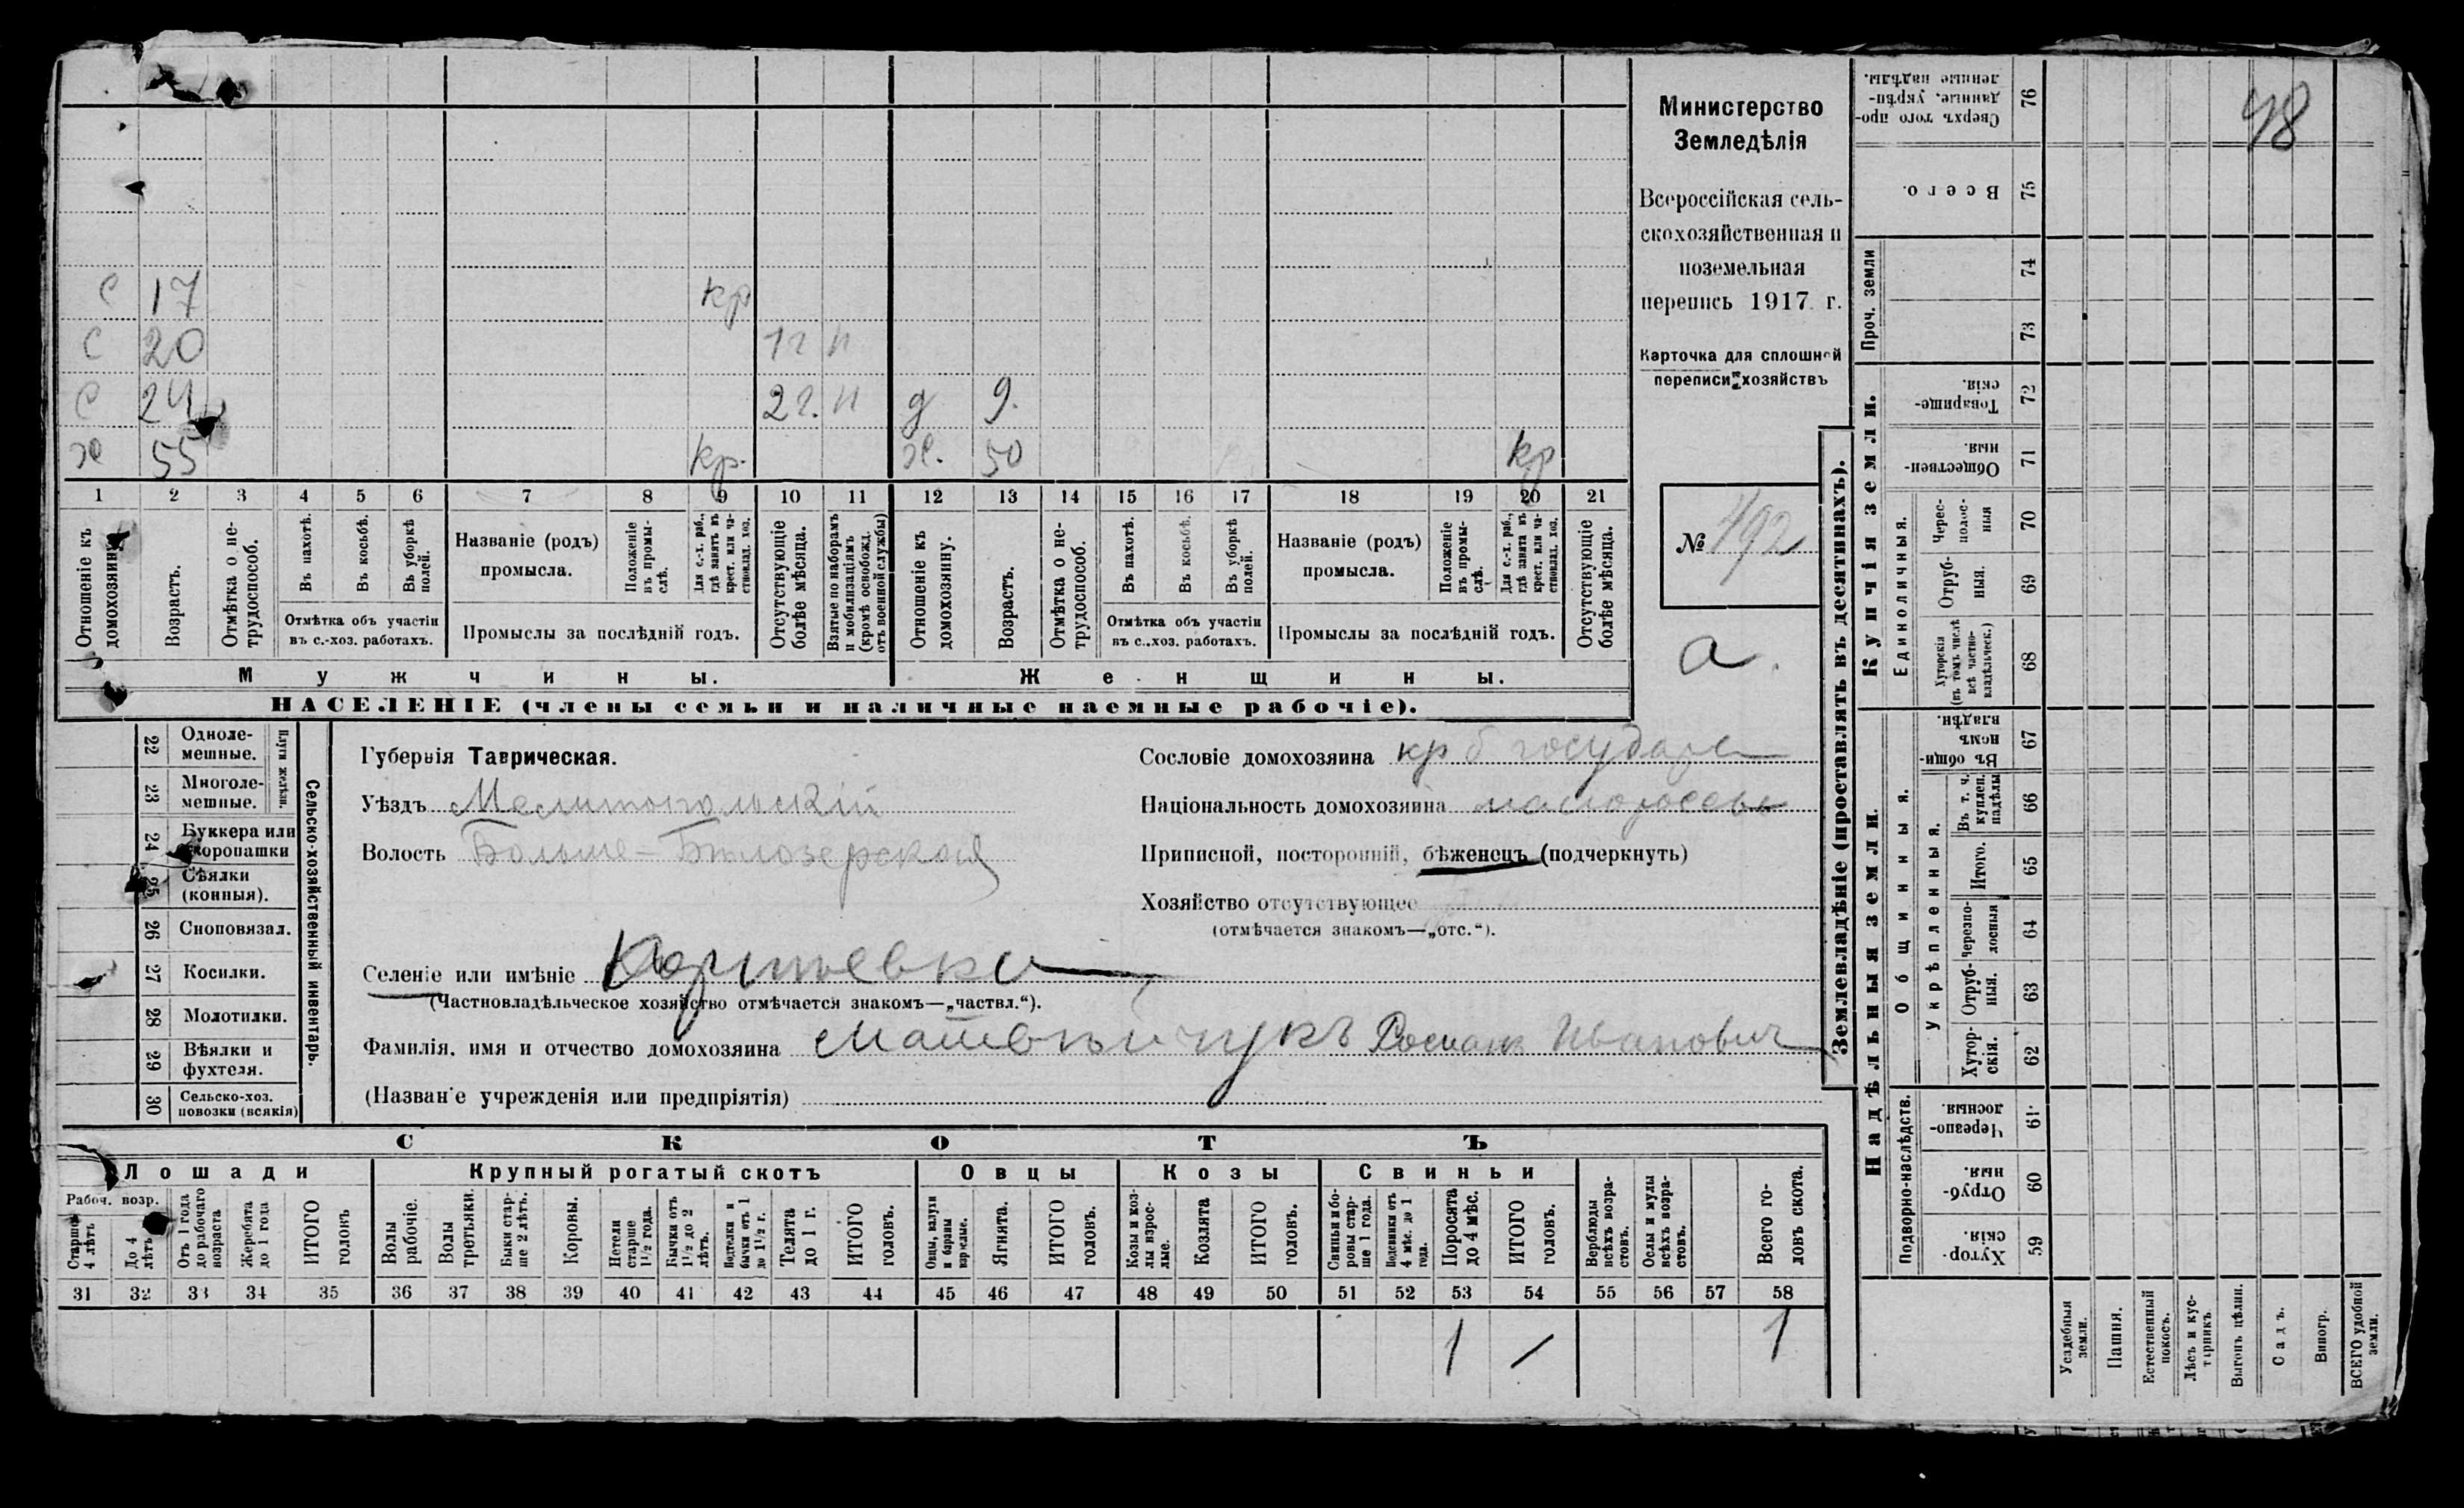 48
Министерство
Земледѣлія
Всероссійская сель-
скохозяйственная и
поземельная
перепись 1917 г.
Карточка для сплошной
переписи хозяйствъ
№ 492
а.
С 17 кр
С 20 1 г н
С 24 2 г. н д 9.
х 55 кр. Ж. 50 кр
1 2 3 4 5 6 7 8 9 10 11 12 13 14 15 16 17 18 19 20 21
Отношеніе къ домохозяину.
Возрастъ.
Отмѣтка о не-трудоспособ.
Въ пахотѣ.
Въ косьбѣ.
Въ уборкѣ полей.
Отмѣтка объ участіи въ с.-хоз. работахъ.
Названіе (родъ) промысла.
Положеніе въ промы-слѣ.
Для с.-х. раб., гдѣ занятъ въ крест. или ча-стновлад. хоз.
Промыслы за послѣдній годъ.
Отсутствующіе болѣе мѣсяца.
Взятые по наборамъ и мобилизаціямъ (кромѣ освобожд. отъ военной службы)
Отношеніе къ домохозяину.
Возрастъ.
Отмѣтка о не-трудоспособ.
Въ пахотѣ.
Въ косьбѣ.
Въ уборкѣ полей.
Отмѣтка объ участіи въ с.-хоз. работахъ.
Названіе (родъ) промысла.
Положеніе въ промы-слѣ.
Для с.-х. раб., гдѣ занята въ крест. или ча-стновлад. хоз.
Промыслы за послѣдній годъ.
Отсутствующіе болѣе мѣсяца.
Мужчины. Женщины.
НАСЕЛЕНІЕ (члены семьи и наличные наемные рабочіе).
Сельско-хозяйственный инвентарь.
Плуги желѣзн.
22 Одноле-мешные.
23 Многоле-мешные.
24 Буккера или скоропашки
25 Сѣялки (конныя).
26 Сноповязал.
27 Косилки.
28 Молотилки.
29 Вѣялки и фухтеля.
30 Сельско-хоз. повозки (всякія)
Губернія Таврическая.
Уѣздъ Мелитопольскій
Волость Больше-Бѣлозерская
Сословіе домохозяина кр б государ
Національность домохозяина малороссъ
Приписной, посторонній, бѣженецъ (подчеркнуть)
Хозяйство отсутствующее
(отмѣчается знакомъ—„отс.“).
Селеніе или имѣніе
(Частновладѣльческое хозяйство отмѣчается знакомъ—„частвл.“).
Фамилія, имя и отчество домохозяина Матвѣйчукъ Романъ Иванович
(Названіе учрежденія или предпріятія)
СКОТЪ
Лошади Крупный рогатый скотъ Овцы Козы Свиньи
Рабоч. возр.
Старше 4 лѣтъ
До 4 лѣтъ
Отъ 1 года до рабочаго возраста
Жеребята до 1 года
ИТОГО головъ
Волы рабочіе.
Волы третьяки.
Быки стар-ше 2 лѣтъ.
Коровы.
Нетели старше 1½ года.
Бычки отъ 1½ до 2 лѣтъ.
бычки отъ 1 до 1½ г.
Телята до 1 г.
ИТОГО головъ.
Овцы, валухи и бараны взрослые.
Ягнята.
ИТОГО головъ.
Козы и коз-лы взрос-лые.
Козлята
ИТОГО головъ.
Свиньи и бо-ровы стар-ше 1 года.
Подсвинки отъ 4 мѣс. до 1 года.
Поросята до 4 мѣс.
ИТОГО головъ.
Верблюды всѣхъ возра-стовъ.
Ослы и мулы всѣхъ возра-стовъ.
Всего го-ловъ скота.
31 32 33 34 35 36 37 38 39 40 41 42 43 44 45 46 47 48 49 50 51 52 53 54 55 56 57 58
1 / 1
Землевладѣніе (проставлять въ десятинахъ).
Надѣльныя земли. Купчія земли. Проч. земли
Подворно-наслѣдств.
Общинныя.
Укрѣпленныя.
Единоличныя.
59 Хутор-скія.
60 Отруб-ныя.
61 Черезпо-лосныя.
62 Хутор-скія.
63 Отруб-ныя.
64 Черезпо-лосныя
65 Итого.
66 Въ т. ч. куплен. надѣлы
67 Въ общи-номъ владѣн.
68 Хуторскія (въ томъ числѣ всѣ частно-владѣльческ.)
69 Отруб-ныя.
70 Черес-полос-ныя
71 Обществен-ныя.
72 Товарище-скія.
73
74
75 Всего.
76 Сверхъ того про-данные, укрѣп-ленные надѣлы.
Усадебныя земли.
Пашня.
Естественный покосъ.
Лѣсъ и кус-тарникъ.
Выгонъ цѣлин.
Садъ.
Виногр.
ВСЕГО удобной земли.